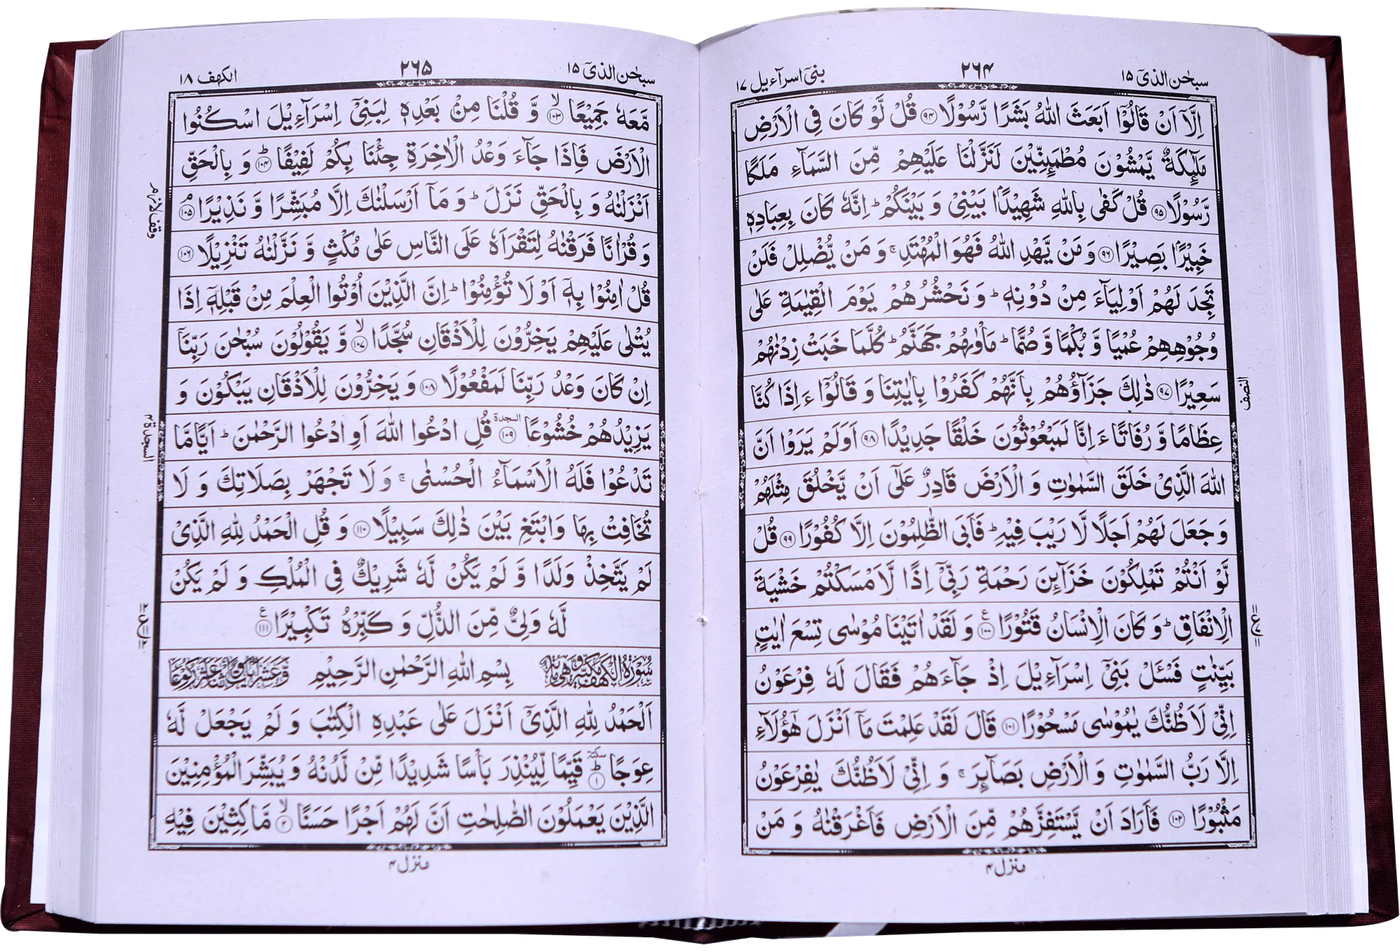 سبحٰن الذیٓ ۱۵
۲۶۴
بنیٓ اسرآءیل ۱۷
اِلَّاۤ اَنْ قَالُوْۤا اَبَعَثَ اللّٰهُ بَشَرًا رَّسُوْلًا ﴿۹۴﴾ قُلْ لَّوْ كَانَ فِی الْاَرْضِ
مَلٰٓىِٕكَةٌ یَّمْشُوْنَ مُطْمَىِٕنِّیْنَ لَنَزَّلْنَا عَلَیْهِمْ مِّنَ السَّمَآءِ مَلَكًا
رَّسُوْلًا ﴿۹۵﴾ قُلْ كَفٰی بِاللّٰهِ شَهِیْدًۢا بَیْنِیْ وَ بَیْنَكُمْ ؕ اِنَّهٗ كَانَ بِعِبَادِهٖ
خَبِیْرًۢا بَصِیْرًا ﴿۹۶﴾ وَ مَنْ یَّهْدِ اللّٰهُ فَهُوَ الْمُهْتَدِ ۚ وَ مَنْ یُّضْلِلْ فَلَنْ
تَجِدَ لَهُمْ اَوْلِیَآءَ مِنْ دُوْنِهٖ ؕ وَ نَحْشُرُهُمْ یَوْمَ الْقِیٰمَةِ عَلٰی
وُجُوْهِهِمْ عُمْیًا وَّ بُكْمًا وَّ صُمًّا ؕ مَاْوٰىهُمْ جَهَنَّمُ ؕ كُلَّمَا خَبَتْ زِدْنٰهُمْ
سَعِیْرًا ﴿۹۷﴾ ذٰلِكَ جَزَآؤُهُمْ بِاَنَّهُمْ كَفَرُوْا بِاٰیٰتِنَا وَ قَالُوْۤا ءَاِذَا كُنَّا
عِظَامًا وَّ رُفَاتًا ءَاِنَّا لَمَبْعُوْثُوْنَ خَلْقًا جَدِیْدًا ﴿۹۸﴾ اَوَلَمْ یَرَوْا اَنَّ
اللّٰهَ الَّذِیْ خَلَقَ السَّمٰوٰتِ وَ الْاَرْضَ قَادِرٌ عَلٰۤی اَنْ یَّخْلُقَ مِثْلَهُمْ
وَ جَعَلَ لَهُمْ اَجَلًا لَّا رَیْبَ فِیْهِ ؕ فَاَبَی الظّٰلِمُوْنَ اِلَّا كُفُوْرًا ﴿۹۹﴾ قُلْ
لَّوْ اَنْتُمْ تَمْلِكُوْنَ خَزَآىِٕنَ رَحْمَةِ رَبِّیْۤ اِذًا لَّاَمْسَكْتُمْ خَشْیَةَ
الْاِنْفَاقِ ؕ وَ كَانَ الْاِنْسَانُ قَتُوْرًا ﴿۱۰۰﴾ وَ لَقَدْ اٰتَیْنَا مُوْسٰی تِسْعَ اٰیٰتٍۭ
بَیِّنٰتٍ فَسْـَٔلْ بَنِیْۤ اِسْرَآءِیْلَ اِذْ جَآءَهُمْ فَقَالَ لَهٗ فِرْعَوْنُ
اِنِّیْ لَاَظُنُّكَ یٰمُوْسٰی مَسْحُوْرًا ﴿۱۰۱﴾ قَالَ لَقَدْ عَلِمْتَ مَاۤ اَنْزَلَ هٰۤؤُلَآءِ
اِلَّا رَبُّ السَّمٰوٰتِ وَ الْاَرْضِ بَصَآىِٕرَ ۚ وَ اِنِّیْ لَاَظُنُّكَ یٰفِرْعَوْنُ
مَثْبُوْرًا ﴿۱۰۲﴾ فَاَرَادَ اَنْ یَّسْتَفِزَّهُمْ مِّنَ الْاَرْضِ فَاَغْرَقْنٰهُ وَ مَنْ
منزل ۴
النصف
سبحٰن الذیٓ ۱۵
۲۶۵
الكهف ۱۸
مَّعَهٗ جَمِیْعًا ﴿۱۰۳﴾ۙ وَّ قُلْنَا مِنْۢ بَعْدِهٖ لِبَنِیْۤ اِسْرَآءِیْلَ اسْكُنُوا
الْاَرْضَ فَاِذَا جَآءَ وَعْدُ الْاٰخِرَةِ جِئْنَا بِكُمْ لَفِیْفًا ﴿۱۰۴﴾ؕ وَ بِالْحَقِّ
اَنْزَلْنٰهُ وَ بِالْحَقِّ نَزَلَ ؕ وَ مَاۤ اَرْسَلْنٰكَ اِلَّا مُبَشِّرًا وَّ نَذِیْرًا ﴿۱۰۵﴾ۘ
وَ قُرْاٰنًا فَرَقْنٰهُ لِتَقْرَاَهٗ عَلَی النَّاسِ عَلٰی مُكْثٍ وَّ نَزَّلْنٰهُ تَنْزِیْلًا ﴿۱۰۶﴾
قُلْ اٰمِنُوْا بِهٖۤ اَوْ لَا تُؤْمِنُوْا ؕ اِنَّ الَّذِیْنَ اُوْتُوا الْعِلْمَ مِنْ قَبْلِهٖۤ اِذَا
یُتْلٰی عَلَیْهِمْ یَخِرُّوْنَ لِلْاَذْقَانِ سُجَّدًا ﴿۱۰۷﴾ۙ وَّ یَقُوْلُوْنَ سُبْحٰنَ رَبِّنَاۤ
اِنْ كَانَ وَعْدُ رَبِّنَا لَمَفْعُوْلًا ﴿۱۰۸﴾ وَ یَخِرُّوْنَ لِلْاَذْقَانِ یَبْكُوْنَ وَ
یَزِیْدُهُمْ خُشُوْعًا ﴿۱۰۹﴾ السجدة قُلِ ادْعُوا اللّٰهَ اَوِ ادْعُوا الرَّحْمٰنَ ؕ اَیًّا مَّا
تَدْعُوْا فَلَهُ الْاَسْمَآءُ الْحُسْنٰی ۚ وَ لَا تَجْهَرْ بِصَلَاتِكَ وَ لَا
تُخَافِتْ بِهَا وَ ابْتَغِ بَیْنَ ذٰلِكَ سَبِیْلًا ﴿۱۱۰﴾ وَ قُلِ الْحَمْدُ لِلّٰهِ الَّذِیْ
لَمْ یَتَّخِذْ وَلَدًا وَّ لَمْ یَكُنْ لَّهٗ شَرِیْكٌ فِی الْمُلْكِ وَ لَمْ یَكُنْ
لَّهٗ وَلِیٌّ مِّنَ الذُّلِّ وَ كَبِّرْهُ تَكْبِیْرًا ﴿۱۱۱﴾
بِسْمِ اللّٰهِ الرَّحْمٰنِ الرَّحِیْمِ
اَلْحَمْدُ لِلّٰهِ الَّذِیْۤ اَنْزَلَ عَلٰی عَبْدِهِ الْكِتٰبَ وَ لَمْ یَجْعَلْ لَّهٗ
عِوَجًا ﴿۱﴾ؕ قَیِّمًا لِّیُنْذِرَ بَاْسًا شَدِیْدًا مِّنْ لَّدُنْهُ وَ یُبَشِّرَ الْمُؤْمِنِیْنَ
الَّذِیْنَ یَعْمَلُوْنَ الصّٰلِحٰتِ اَنَّ لَهُمْ اَجْرًا حَسَنًا ﴿۲﴾ۙ مَّاكِثِیْنَ فِیْهِ
منزل ۴
وقف لازم
السجدة ۴